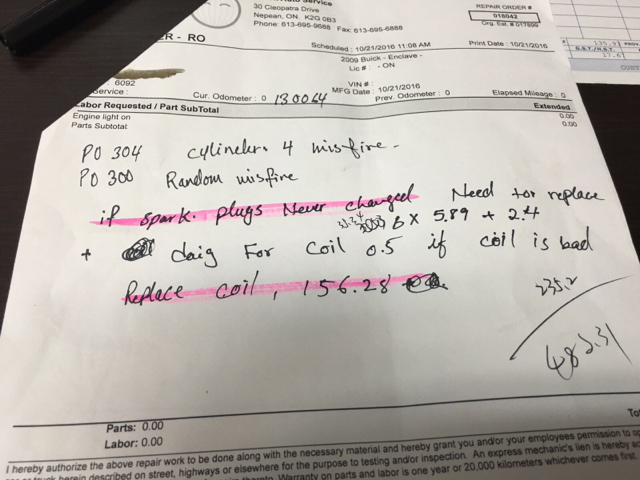 Auto Service
30 Cleopatra Drive
Nepean, ON. K2G 0B3
Phone: 613-695-9688 Fax: 613-695-6888
REPAIR ORDER #
018042
Org. Est. # 017899
ER - RO
Scheduled : 10/21/2016 11:08 AM
Print Date : 10/21/2016
2009 Buick - Enclave -
Lic # : - ON
6092
VIN # :
Service :
Cur. Odometer : 0 130064
MFG Date : 10/21/2016
Prev. Odometer : 0
Elapsed Mileage : 0
Labor Requested / Part SubTotal
Extended
Engine light on 0.00
Parts Subtotal 0.00
PO 304 cylinders 4 misfire -
PO 300 Random misfire
if spark plugs Never changed Need for replace
6 x 5.89 + 2.4
+ daig For coil 0.5 if coil is bad
Replace coil, 156.28
235.2
482.31
Parts: 0.00
Labor: 0.00
I hereby authorize the above repair work to be done along with the necessary material and hereby grant you and/or your employees permission to
herein described on street, highways or elsewhere for the purpose to testing and/or inspection. An express mechanic's lien is hereby
Warranty on parts and labor is one year or 20,000 kilometers whichever comes first.